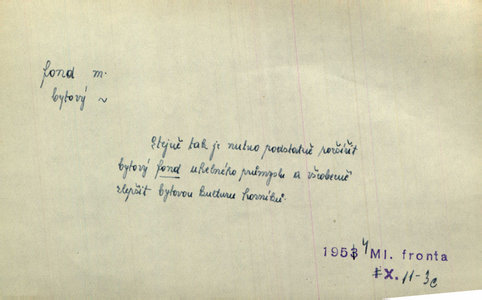 fond m.
bytový ~
Stejně tak je nutno podstatně rozšířit
bytový fond uhelného průmyslu a všeobecně
zlepšit bytovou kulturu horníků.
1954 Ml. fronta
X. 11-3c